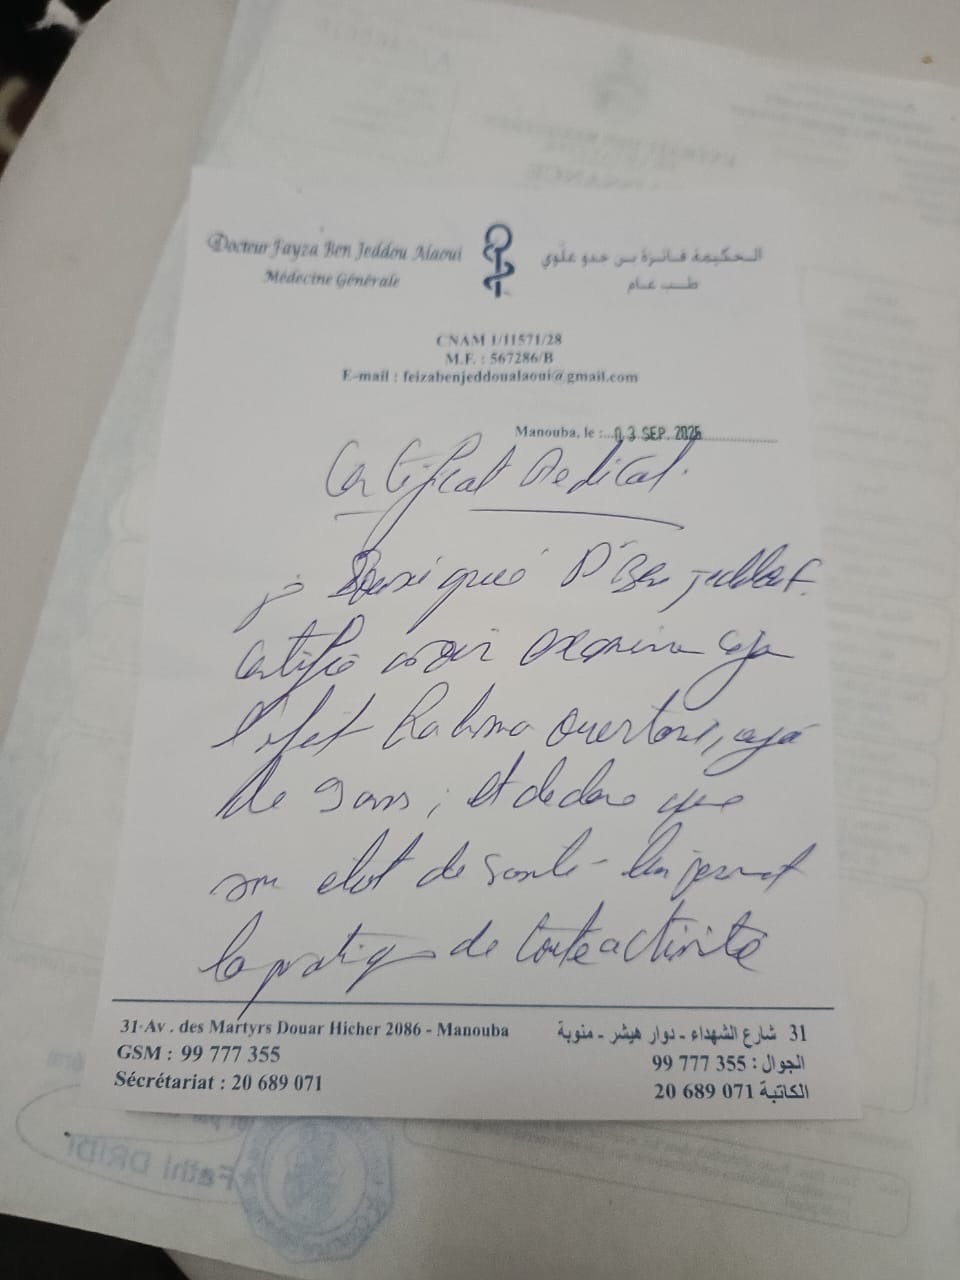 Docteur Fayza Ben Jeddou Alaoui
Médecine Générale
الحكيمة فائزة بن جدو علوي
طب عام
CNAM 1/11571/28
M.F. : 567286/B
E-mail : feizabenjeddoualaoui@gmail.com
Manouba, le : 03 SEP. 2025
Certificat Médical
je Soussigné Dr Ben Jeddou F.
certifie avoir examiné
l'enfant Rahma Ouertani, agé
de 9 ans, et declare que
son état de santé lui permet
la pratique de toute activité
31 Av . des Martyrs Douar Hicher 2086 - Manouba
GSM : 99 777 355
Sécrétariat : 20 689 071
31 شارع الشهداء - دوار هيشر - منوبة
الجوال : 355 777 99
الكاتبة 071 689 20
Fathi DRIDI